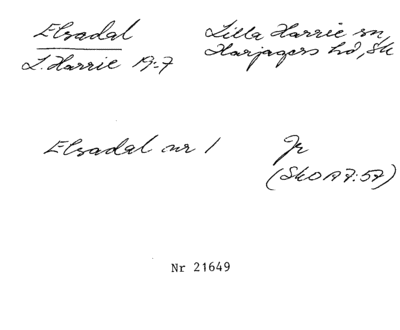 Elsadal
Lilla Harrie sn,
L. Harrie 19:7
Harjagers hd, Sk
Elsadal nr 1
Jr
(SkO 17:57)
Nr 21649